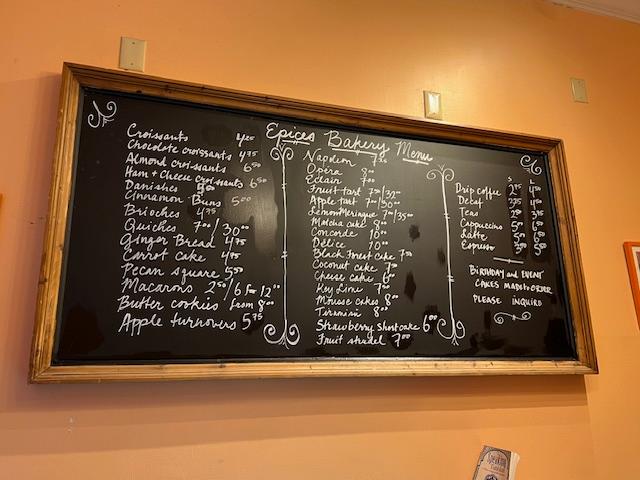 Epices Bakery Menu
Croissants
Chocolate croissants 4.75
Almond croissants 6.50
Ham + Cheese croissants 6.50
Danishes
Cinnamon Buns 5.00
Brioches 4.75
Quiches 7.00/30.00
Ginger Bread 4.75
Carrot cake 4.75
Pecan square 5.50
Macarons 2.50/6 for 12.00
Butter cookies from 8.00
Apple turnovers 5.75
Napoleon
Opera
Eclair 7.00
Fruit tart
Apple tart
Lemon Meringue
Matcha cake 8.00
Concorde 10.00
Delice 10.00
Black Forest cake 7.50
Coconut cake
Cheese cake
Key Lime 7.00
Mousse cakes 8.00
Tiramisu 8.00
Strawberry Shortcake 6.00
Fruit strudel 7.00
S L
Drip coffee
Decaf
Teas
Cappuccino
Latte
Espresso
BIRTHDAY and EVENT
CAKES MADE to ORDER
PLEASE INQUIRE